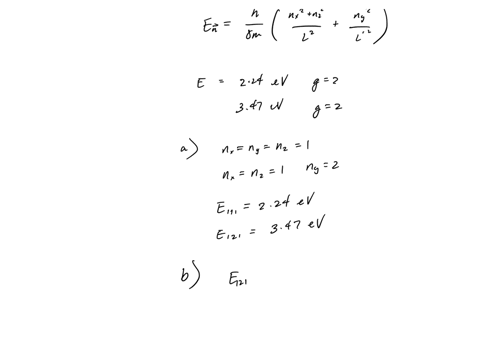 E_n⃗ = h²/8m ( (n_x² + n_z²)/L² + n_y²/L'² )
E = 2.24 eV g=2
3.47 eV g=2
a) n_x = n_y = n_z = 1
n_x = n_z = 1 n_y = 2
E_111 = 2.24 eV
E_121 = 3.47 eV
b) E_121